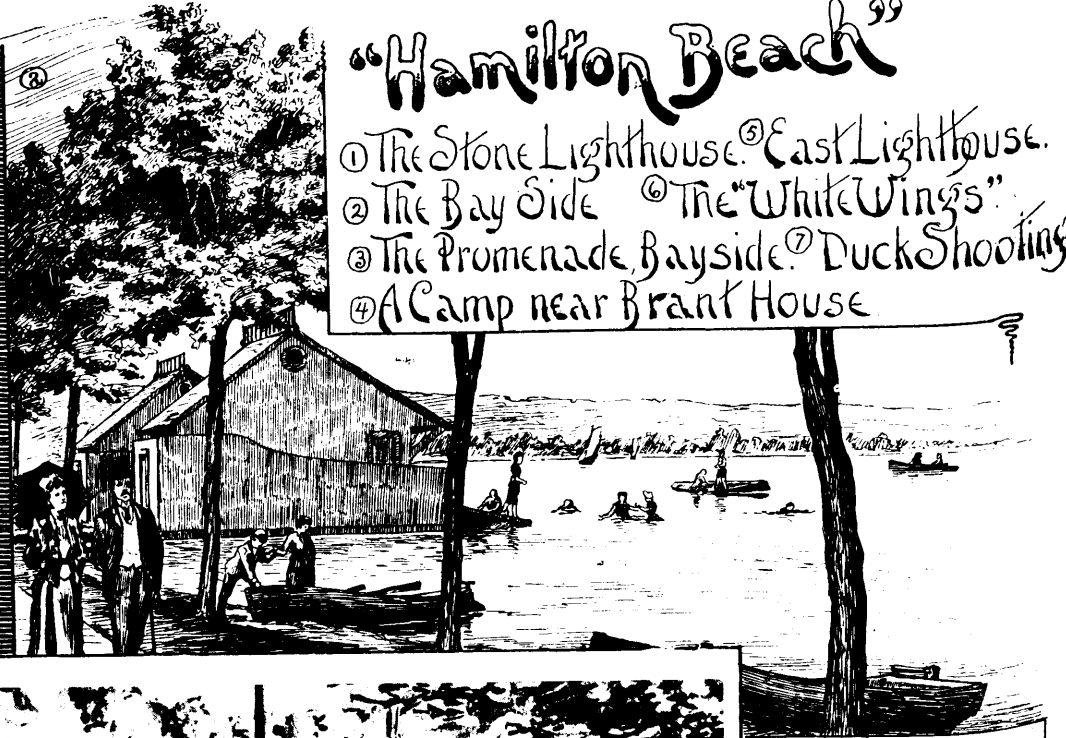 ②
"Hamilton Beach"
① The Stone Lighthouse. ⑤ East Lighthouse.
② The Bay Side ⑥ The "White Wings".
③ The Promenade, Bayside. ⑦ Duck Shooting
④ A Camp near Brant House